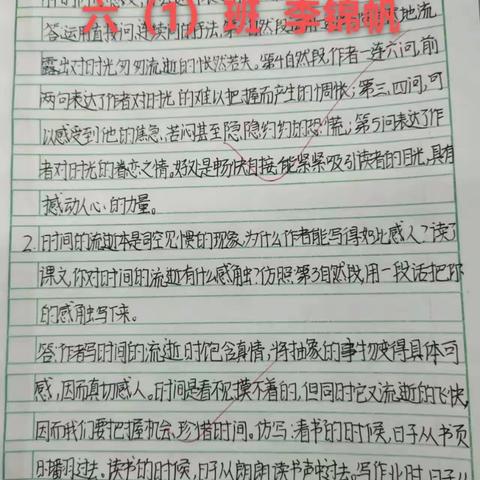 六（1）班 李锦帆
答:运用直接问、连续问的手法,第1自然段
露出对时光匆匆流逝的怅然若失。第4自然段,作者一连六问,前
两句表达了作者对时光的难以把握而产生的惆怅;第三、四问,可
以感受到他的焦急、苦闷甚至隐隐约约的恐慌;第5问表达了作
者对时光的眷恋之情。好处是畅快直接,能紧紧吸引读者的目光,具有
撼动人心的力量。
2.时间的流逝本是司空见惯的现象,为什么作者能写得如此感人?读了
课文,你对时间的流逝有什么感触?仿照第3自然段,用一段话把你
的感触写下来。
答:作者写时间的流逝时饱含真情,将抽象的事物变得具体可
感,因而真切感人。时间是看不见摸不着的,但同时它又流逝的飞快,
因而我们要把握机会,珍惜时间。仿写:看书的时候,日子从书页
中翻过去。读书的时候,日子从朗朗读书声中过去。写作业时,日子从